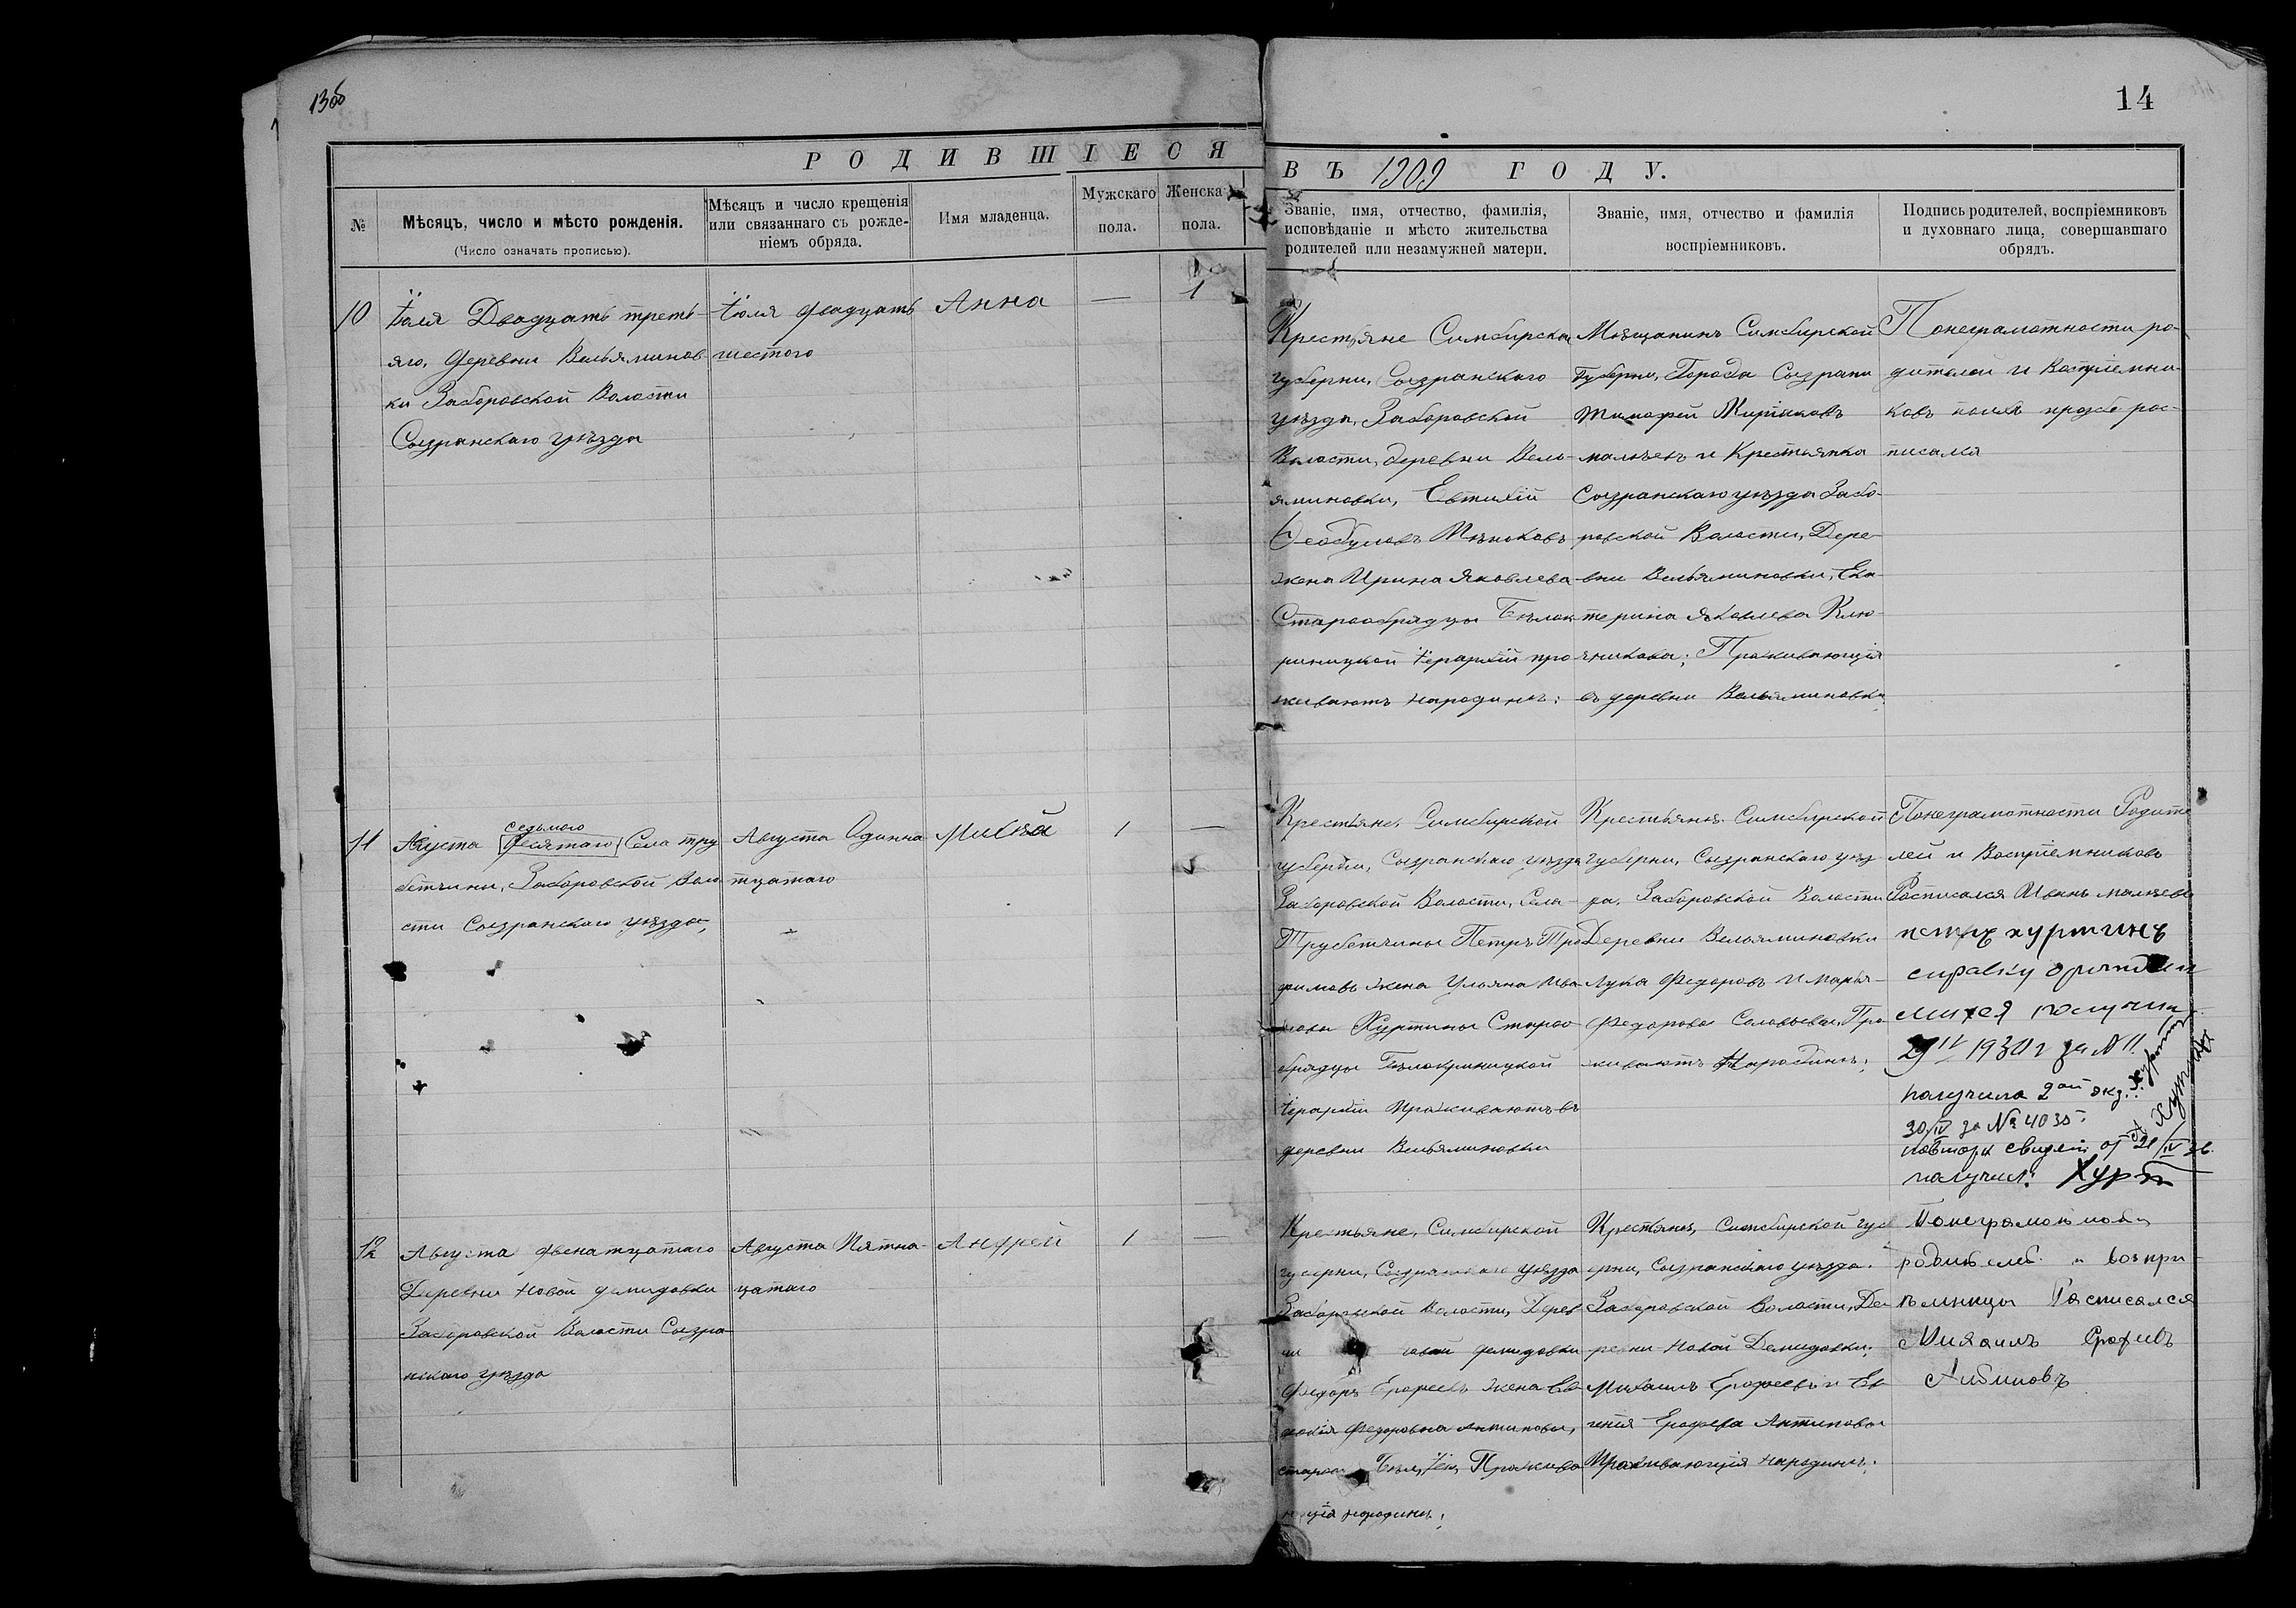 13об
14
РОДИВШІЕСЯ
ВЪ 1909 ГОДУ.
№
Мѣсяцъ, число и мѣсто рожденія.
(Число означать прописью).
Мѣсяцъ и число крещенія
или связаннаго съ рожде-
ніемъ обряда.
Имя младенца.
Мужскаго
пола.
Женска
пола.
Званіе, имя, отчество, фамилія,
исповѣданіе и мѣсто жительства
родителей или незамужней матери.
Званіе, имя, отчество и фамилія
воспріемниковъ.
Подпись родителей, воспріемниковъ
и духовнаго лица, совершавшаго
обрядъ.
10
Іюля Двадцать треть-
яго, Деревни Вельяминов
ки Заборовской Волости
Сызранскаго уѣзда
Іюля двадцать
шестого
Анна
—
1
Крестьяне Симбирской
губерни, Сызранскаго
уѣзда, Заборовской
Волости, деревни Вель-
яминовки, Евтихій
Ѳеодуловъ
жена Ирина Яковлева
Старообрядцы Бѣлок
риницкой Іерархій про
живаютъ народинѣ:
Мѣщанинъ Симбирской
Губерни, Города Сызрани
Тимофей
и Крестьянка
Сызранскаго уѣзда Забо-
ровской Волости, Дере-
вни Вельяминовки, Ека-
терина Яковлева Клю-
чникова; Проживающія
въ деревни Вельяминовки.
Понеграмотности ро-
дителей и Воспріемни-
ковъ поихъ прозбе рос-
писался
11
Августа седьмого [десятаго] Села тру
бетчины, Заборовской Воло
сти Сызранскаго уѣзда,
Августа Одинна
тцатаго
Михѣй
1
—
Крестьяне, Симбирской
губерни, Сызранскаго уѣзда
Заборовской Волости, Села
Трубетчины Петръ Тро
фимовъ жена Ульяна Ива
нова Хуртины Староо
брядцы Бѣлокриницкой
Іерархіи Проживаютъ въ
деревни Вельяминовки
Крестьянѣ Симбирской
губерни, Сызранскаго уѣз
да, Заборовской Волости
Деревни Вельяминовки
Лука Федоровъ и Марья
Федорова Соловьевы, Про
живаютъ Народинѣ;
Понеграмотности Родите
лей и Воспріемниковъ
Росписался Иванъ
хуртинъ
справку о рождении
михея получил
29 IV 193 г за № 11.
получила 2ой экз.
30/IV за № 4035
повторн свидет от 21/IV 36.
получил: Хурт
12
Августа двенатцатаго
Деревни Новой демидовки
Заборовской Волости Сызра
нскаго уѣзда
Августа Пятна
цатаго
Андрей
1
—
Крестьяне, Симбирской
губерни, Сызранскаго уѣзда
Заборовской Волости, Дерев
ни новой демидовки
Федоръ Ерофеевъ жена Ев
докія Федоровна Антиповы,
староо Бѣл, Іен, Прожива
ющія народинѣ;
Крестьянѣ, Симбирской губ
ерни, Сызранскаго уѣзда.
Заборовской Волости, Де
ревни Новой Демидовки;
Михаилъ Ерофеевъ и Ев
гения Ерофева Антиповы
Проживающія народинѣ;
Понеграмотности
родителей и воспри
ѣмницы Росписался
Михаилъ Ерофеевъ